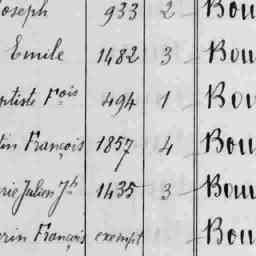 Joseph 933 2 Bou
Emile 1482 3 Bou
ptiste Fçois 494 1 Bou
tin François 1857 4 Bou
rie Julien Jh 1435 3 Bou
erin François exempt Bou